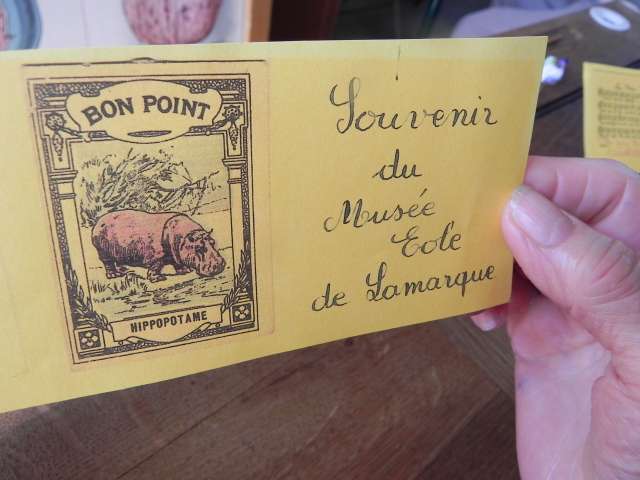 BON POINT
HIPPOPOTAME
Souvenir
du
Musée
Eole
de Lamarque